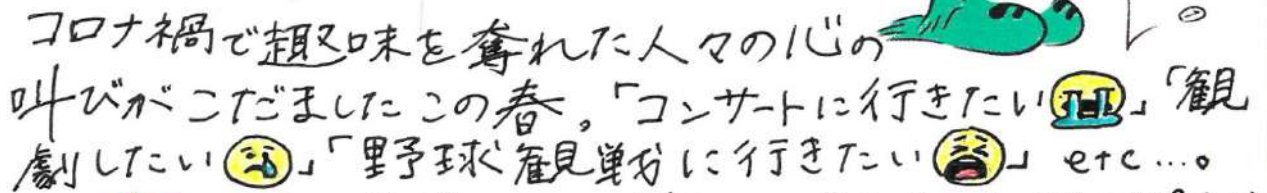 コロナ禍で趣味を奪れた人々の心の
叫びがこだましたこの春。「コンサートに行きたい😭」「観
劇したい😢」「野球観戦に行きたい😫」etc…。